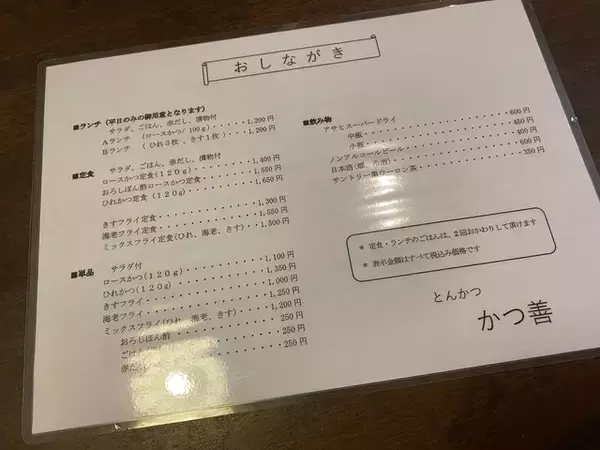 おしながき
■ランチ（平日のみの御用意となります）
サラダ、ごはん、赤だし、漬物付
Aランチ （ロースかつ/100g）・・・・・1,200円
Bランチ （ひれ3枚、きす1枚）・・・・1,200円
■定食 サラダ、ごはん、赤だし、漬物付
ロースかつ定食(120g)・・・・・・・・・1,400円
おろしぽん酢ロースかつ定食・・・・・・・1,550円
ひれかつ定食(120g)・・・・・・・・・・1,650円
きすフライ定食・・・・・・・・・・・・・1,300円
海老フライ定食・・・・・・・・・・・・・1,550円
ミックスフライ定食(ひれ、海老、きす)・・1,500円
■単品 サラダ付
ロースかつ(120g)・・・・・・・・・・・1,100円
ひれかつ(120g)・・・・・・・・・・・・1,350円
きすフライ・・・・・・・・・・・・・・・1,000円
海老フライ・・・・・・・・・・・・・・・1,250円
ミックスフライ(ひれ、海老、きす)・・・・1,200円
おろしぽん酢・・・・・・・・・・・・・・250円
ごはん・・・・・・・・・・・・250円
赤だし・・・・・・・・・・・・250円
■飲み物
アサヒスーパードライ
中瓶・・・・・・・・・・・・・・600円
小瓶・・・・・・・・・・・・・・450円
ノンアルコールビール・・・・・・・・400円
日本酒(燗、冷酒)・・・・・・・・・・
サントリー黒ウーロン茶・・・・・・・350円
＊ 定食・ランチのごはんは、2回おかわりして頂けます
＊ 表示金額はすべて税込み価格です
とんかつ
かつ善